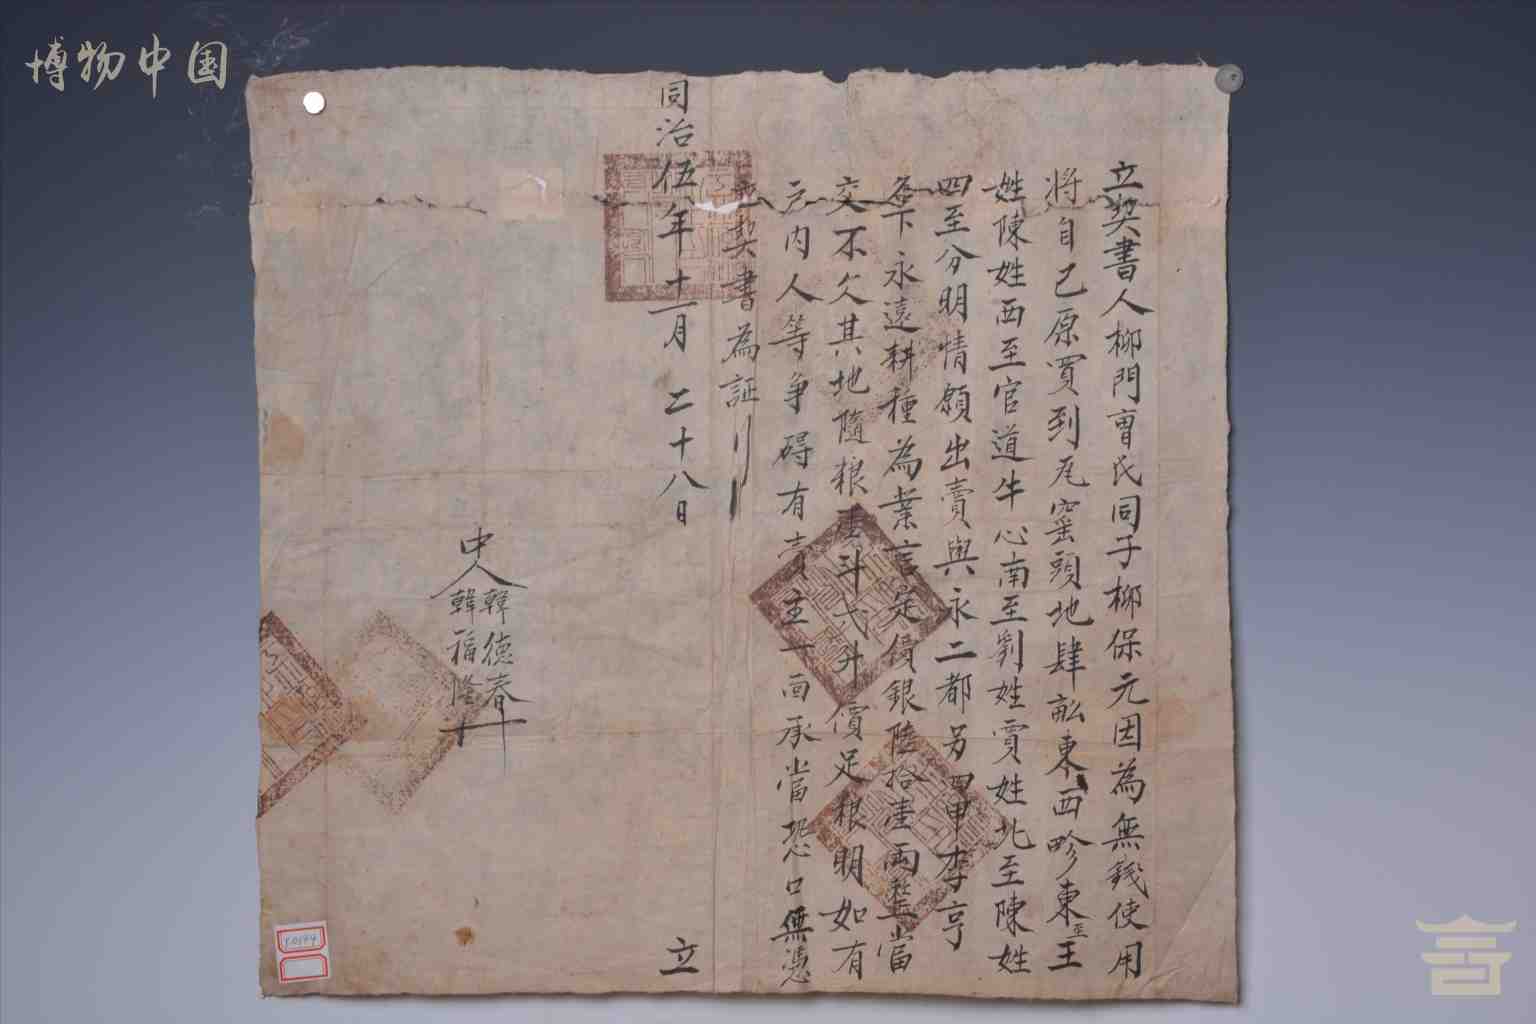 博物中国
立契書人柳門曺氏同子柳保元因為無錢使用
将自己原買到瓦窑頭地肆畝東西畛東至王
姓陳姓西至官道牛心南至劉姓賈姓北至陳姓
四至分明情願出賣與永二都另四甲李亨
名下永遠耕種為業言定價銀陸拾壹両整當
交不欠其地隨粮壹斗弍升價足粮明如有
户内人等争碍有賣主一面承當恐口無憑
立契書為証
同治伍年十一月二十八日 立
中人
韓德春
韓福隆
十